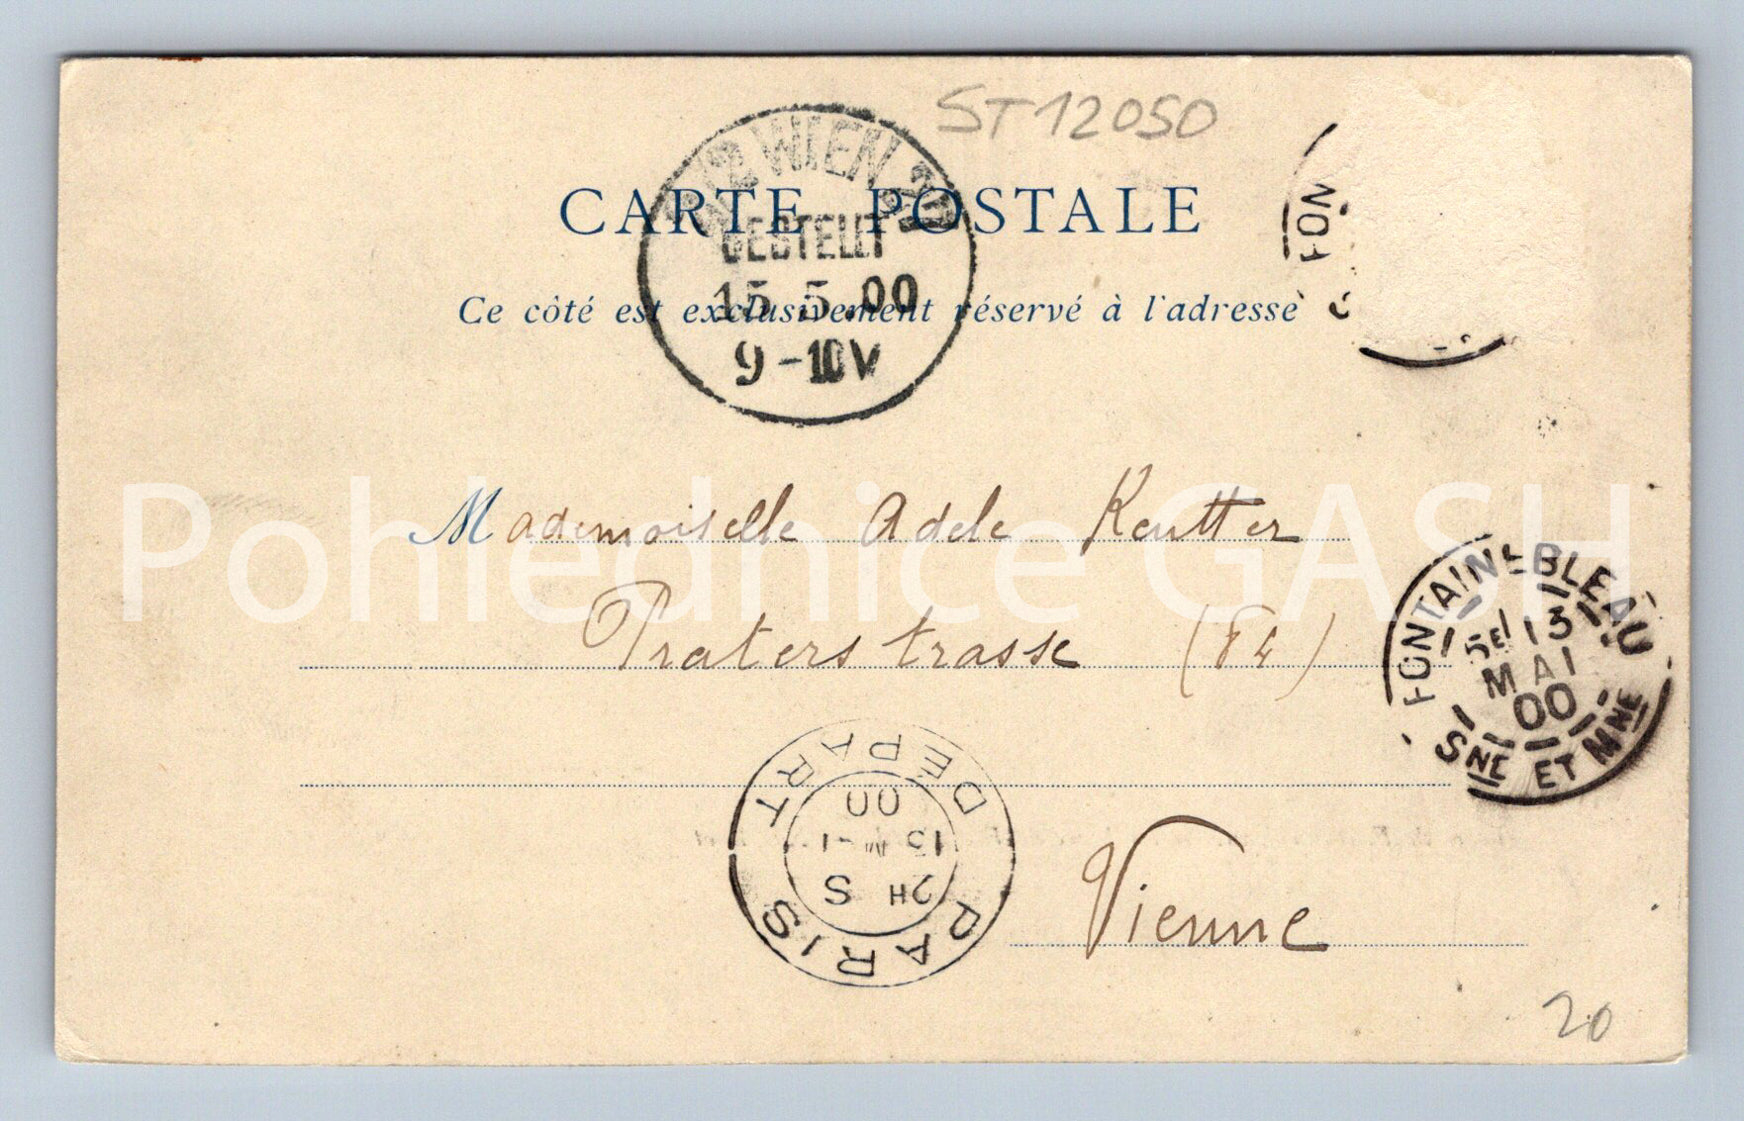 ST12050
2/2 WIEN 2/2
BESTELLT
15.5.00
9-10V
CARTE POSTALE
Ce côté est exclusivement réservé à l'adresse
FON
Mademoiselle Adele Reutter
Praterstrasse (84)
Vienne
FONTAINEBLEAU
5E 13
MAI
00
SNE ET MNE
PARIS DEPART
2H S
13 M-I
00
20
Pohlednice GASH